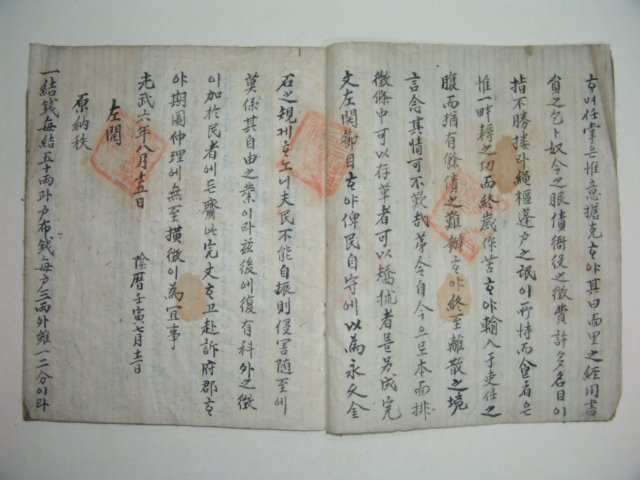 하며任掌은惟意掊克하야其曰面里之經用書
貧之乞卜奴令之服債衙役之徵費許多名目이
指不勝摟라繩樞蓬戶之氓이所恃而食者은
惟一畔耨之功而終歲作苦하야輸入于吏任之
腹而猶有餘債之難辦하야終至離散之境
言念其情可不歎哉第令自今으로本面排
徵條中可以存革者可以矯捄者를另成完
文左開節目하야俾民自守에以爲永久金
石之規게하노니夫民不能自振則侵害隨至에
莫係其自由之業이라玆後에復有科外之徵
이加於民者에든齎此完文하고赴訴府郡하
야期圖伸理에無至橫徵이爲宜事
光武六年八月十五日 陰曆壬寅七月十二日
左開
原納秩
一結錢每結五十兩과戶布錢每戶三兩外雖一二分이라